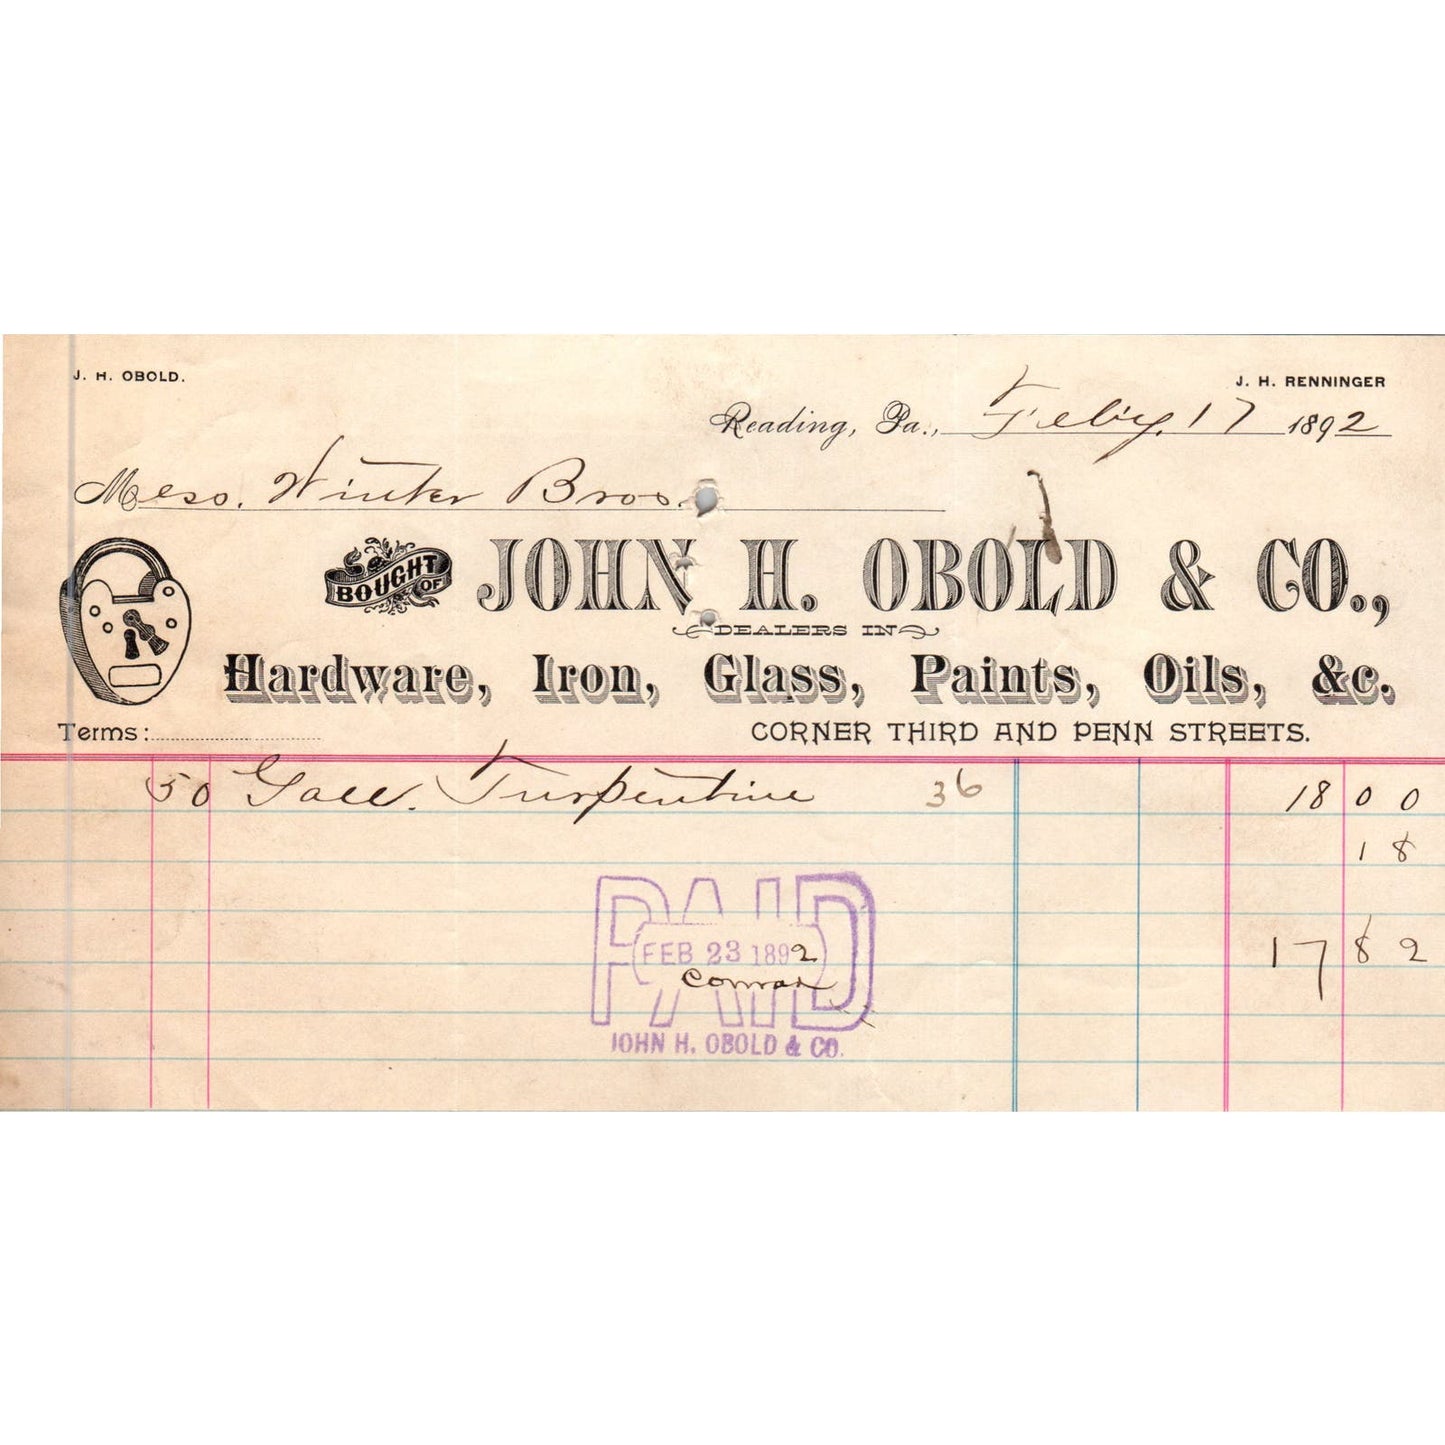 J. H. OBOLD.
J. H. RENNINGER
Reading, Pa., Feby. 17 1892
Mess. Winter Bros.
BOUGHT OF JOHN H. OBOLD & CO.,
DEALERS IN
Hardware, Iron, Glass, Paints, Oils, &c.
Terms: CORNER THIRD AND PENN STREETS.
50 Gall. Turpentine 36 18 00
18
17 82
PAID
FEB 23 1892
Conrad
JOHN H. OBOLD & CO.